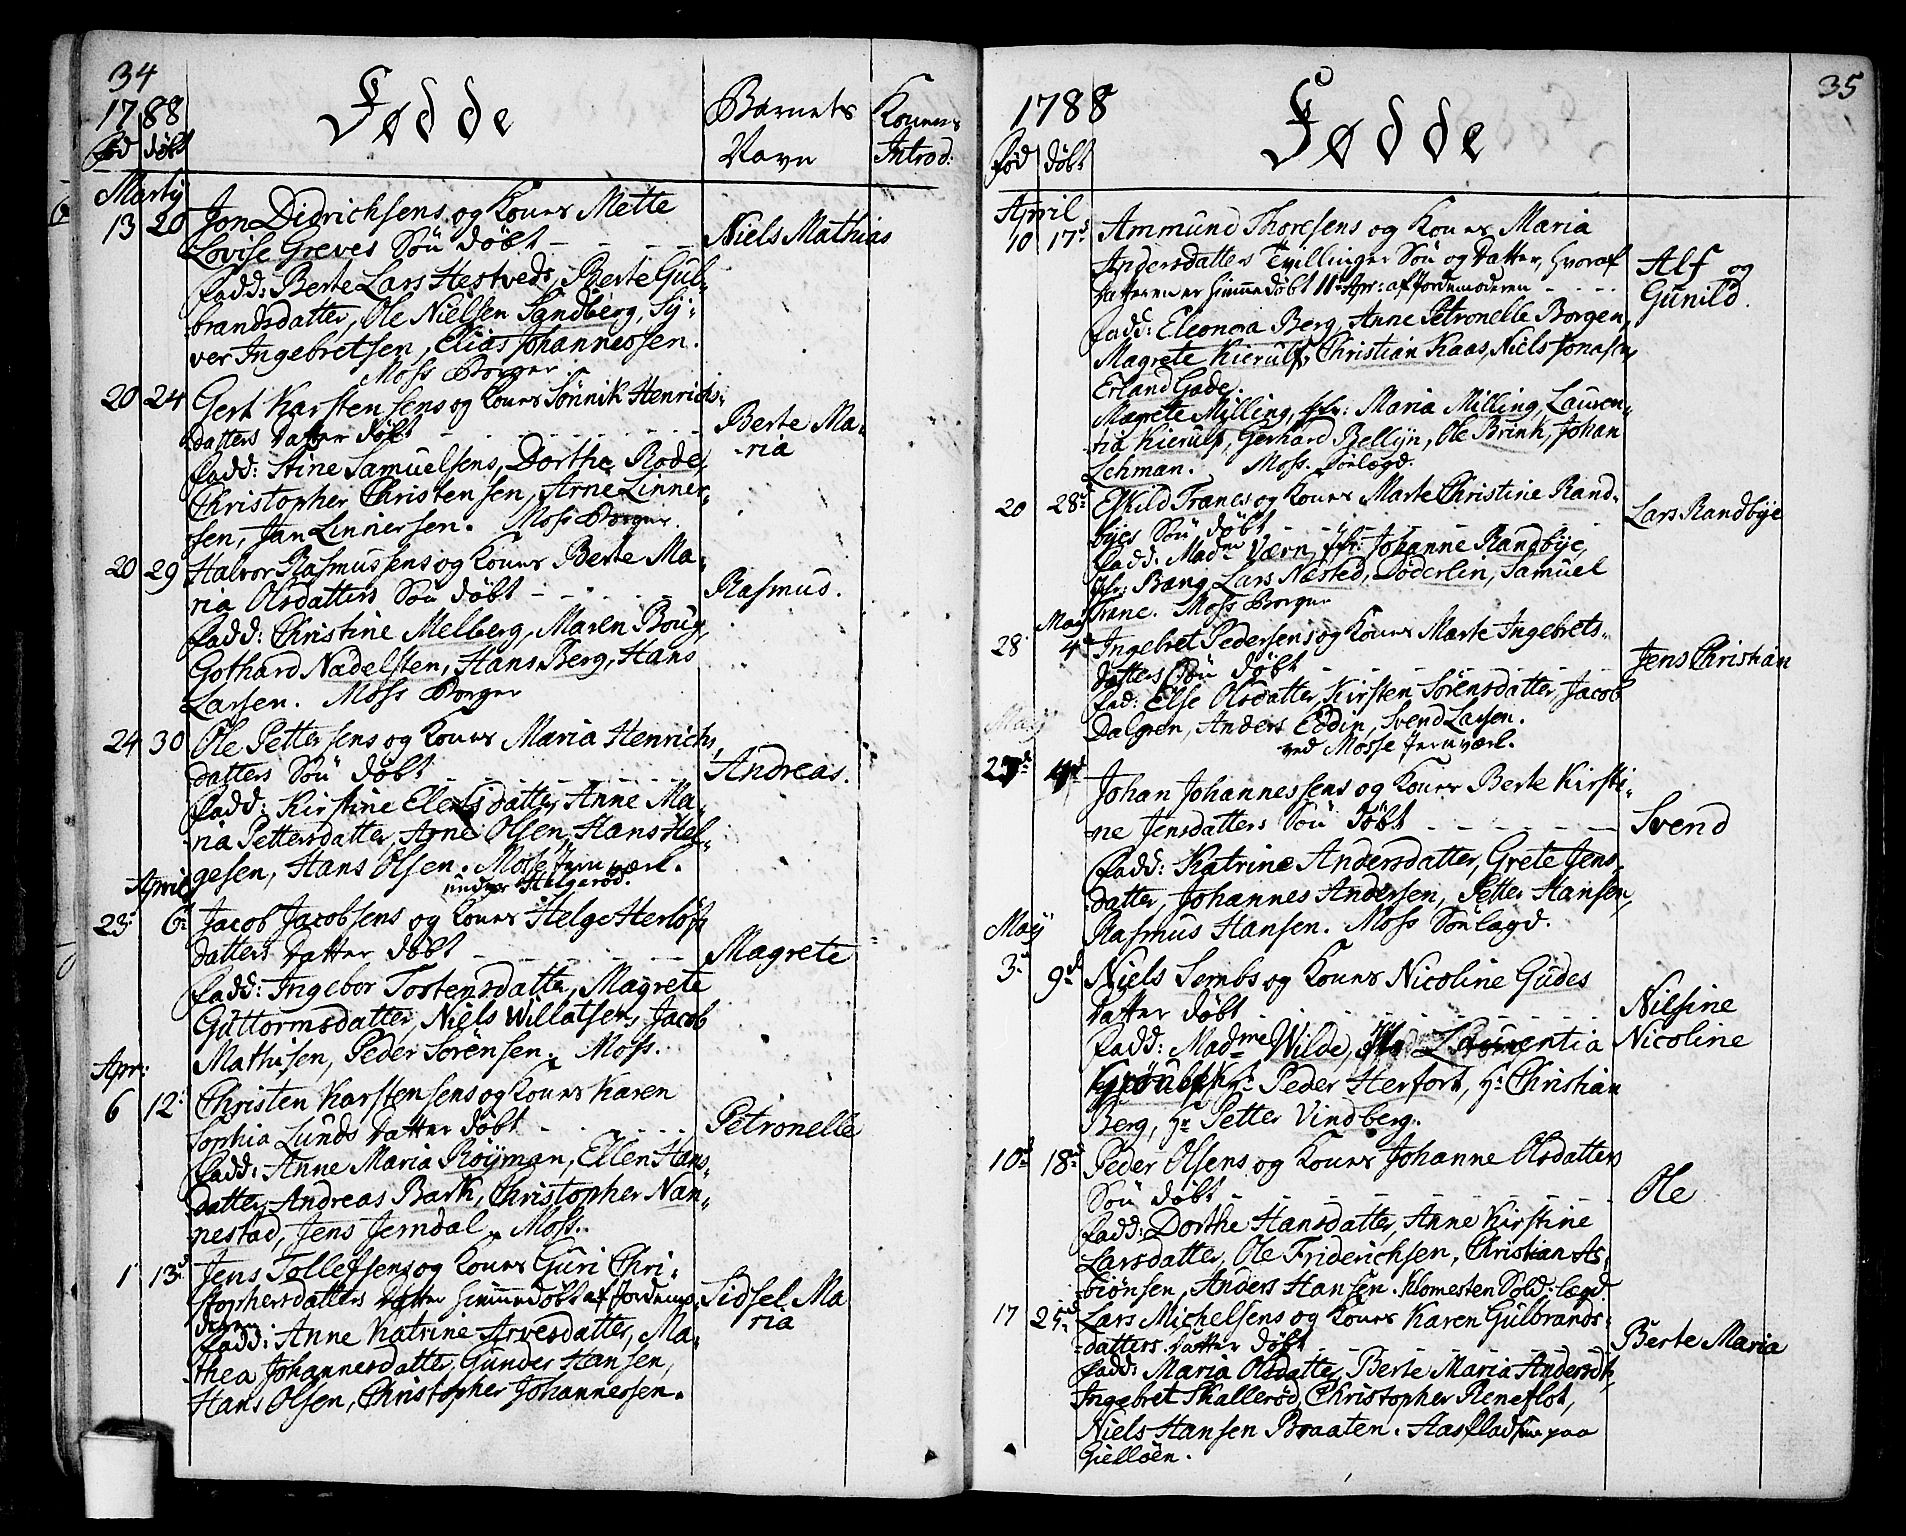 34
1788
Fødde
Barnets Navn
Konens Introd:
Fød døbt
Martÿ
13 20 Jon Didrichsens og Kones Mette
Lovise Greves Søn døbt - - - - Niels Mathias
fadd: Berte Lars Hestveds, Berte Gul-
brandsdatter, Ole Nielsen Sandberg, Sÿ-
ver Ingebretsen, Elias Johannessen.
Moss Borger.
20 24 Gert Karstensens og Kones Sønnik Henrichs-
datters datter døbt - - - - Berte Ma-
ria
fadd: Stine Samuelsens, Dorthe Rode,
Christopher Christensen, Arne Linner-
sen, Jan Linnersen. Moss Borger.
20 29 Halvor Rasmussens og Kones Berte Ma-
ria Olsdatters Søn døbt - - - - Rasmus.
fadd: Christine Melberg, Maren Boug,
Gothard Nadelsten, Hans Berg, Hans
Larsen. Moss Borger
24 30 Ole Pettersens og Kones Maria Henrichs
datters Søn døbt - - - - Andreas.
fadd: Kirstine datter, Anne Ma-
ria Pettersdatter, Arne Olsen, Hans Hel-
gesen, Hans Olsen. Mosse Jernværk.
under Helgerød.
April
23. 6. Jacob Jacobsens og Kones Helge Herlofs
datters datter døbt - - - - Magrete
fadd: Ingebor Tostensdatter, Magrete
Guttormsdatter, Niels Willatsen, Jacob
Mathisen, Peder Sørensen. Moss.
Apr:
6 12. Christen Karstensens og Kones Karen
Sophia Lunds datter døbt - - - - Petronelle
fadd: Anne Maria Röÿman, Ellen Hans-
datter, Andreas Bark, Christopher Nan-
nestad, Jens Jerndal. Moss.
1 13d Jens Tollefsens og Kones Guri Chri-
stophersdatters datter hiemmedøbt af Jordemo-
deren Sidsel Ma
ria
fadd: Anne Katrine Arvesdatter, Ma-
thea Johannesdatter, Gunder Hansen,
Hans Olsen, Christopher Johannessen.
35
1788
Fødde
Fød døbt
April
10 17d Ammund Thoresens og Kones Maria
Andersdatters Tvillinger Søn og datter, hvoraf
datteren er hiemmedøbt 11te Apr: af Jordemoderen - - - Alf og
Gunild.
fadd: Eleonora Berg, Anne Petronelle Borgen,
Magrete Kierulf, Christian Kaas, Niels Jonasen,
Erland Gade.
Magrete Milling, Jfr: Maria Milling, Lauren-
tia Kierulf, Gerhard Bellÿn, Ole Brink, Johan
Lehman. Moss. Sølægd.
20 28d Eskild Tranes og Kones Marte Christine Rand-
byes Søn døbt - - - - Lars Randbÿe
fadd: Madme Værn, Jfr: Johanne Randbÿe,
Jfr: Bang, Lars Næsted, Døderlin, Samuel
Trane. Moss Borger
Maÿ
28 4d Ingebret Pedersens og Kones Marte Ingebrets-
datters Søn døbt - - - - Jens Christian
fad: Else Olsdatter, Kirsten Sørensdatter, Jacob
Dalgren, Anders Eddin, Svend Larsen.
ved Mosse Jernværk.
Maÿ
4d Johan Johannessens og Kones Berte Kirsti-
ne Jensdatters Søn døbt - - - - Svend
fadd: Katrine Andersdatter, Grete Jens-
datter, Johannes Andersen, Petter Hansen,
Rasmus Hansen. Moss Sølægd.
Maÿ
3d 9d Niels Sembs og Kones Nicoline Gudes
datter døbt - - - - Nilsine
Nicoline
fadd: Madme Wilde, Laurentia
Hr: Peder Herfort, Hr: Christian
Berg, Hr: Petter Vindberg.
10d 18d Peder Olsens og Kones Johanne Olsdatters
Søn døbt - - - - Ole
fadd: Dorthe Hansdatter, Anne Kirstine
Larsdatter, Ole Friderichsen, Christian As-
biönsen, Anders Hansen. Klomesten Sold: lægd.
17 25d Lars Michelsens og Kones Karen Gulbrands-
datters datter døbt - - - - Berte Maria
fadd: Maria Olsdatter, Berte Maria Andersdtr,
Ingebret Skallerød, Christopher Reneflot,
Niels Hansen Braaten. paa
Gielløen.